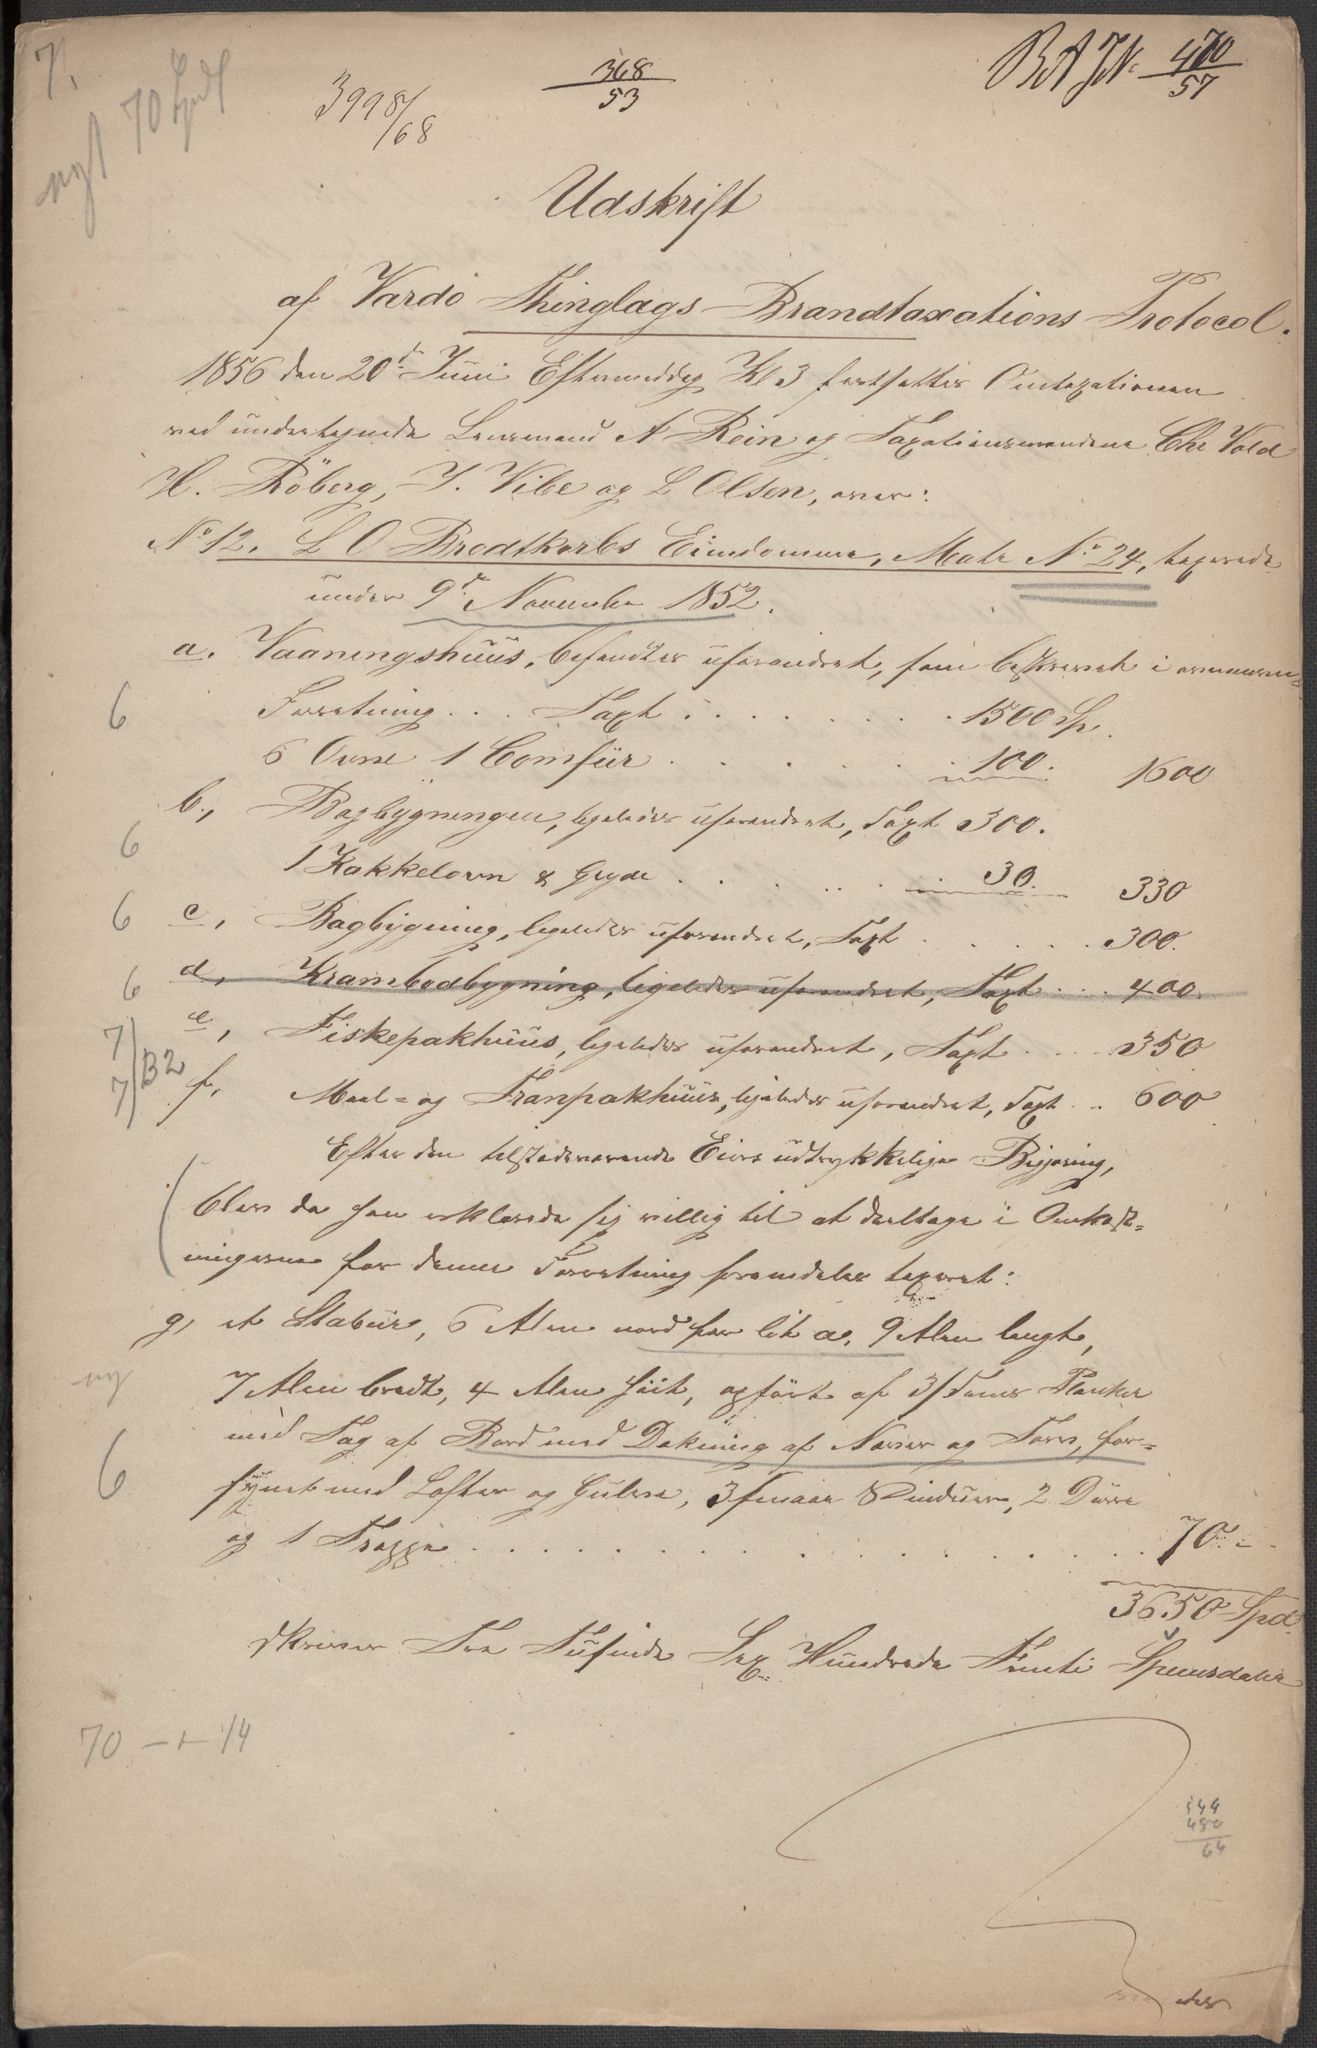 7.
nyt 70 Spd
3998/68
368/53
BAJN. 470/57
Udskrift
af Vardö Thinglags Brandtaxations Protocol.
1856 den 20de Juni Eftermiddag Kl 3 fortsattes Omtaxationen
ved undertegnede Lensmand A Rein og Taxationsmændene Chr Vold
H. Röberg, J. Vibe og L Olsen, over:
No 12. L O Brodtkorbs Eiendomme, Matr No 24, taxerede
under 9de November 1852.
a. Vaaningshuus, befandtes uforandret, som beskrevet i ovennævn=
6 Forretning . . . Taxt . . . . . . . . 1500 Sp.
6 Ovne 1 Comfür . . . . . . 100. 1600
b., Bagbygningen, ligeledes uforandret, Taxt 300.
6 1 Kakkelovn & Gryde . . . . . . 30. 330
6 c, Bagbygning, ligeledes uforandret, Taxt . . . . . 300.
6 d, Krambodbygning, ligeledes uforandret, Taxt . . . 400.
7 e, Fiskepakhuus, ligeledes uforandret, Taxt . . . . 350
7/B2 f, Meel= og Tranpakhuus, ligeledes uforandret, Taxt . . 600
Efter den tilstedeværende Eiers udtrykkelige Begjæring,
blev da han erklærede sig villig til at deeltage i Omkost=
ningerne for denne Forretning fremdeles taxeret:
g, et Stabuur, 6 Alen nord for lit a, 9 Alen langt,
ny 7 Alen bredt, 4 Alen höit, opfört af 3/ Toms Planker
med Tag af Bord med Dækning af Næver og Torv, for=
6 synet med Lofter og Gulve, 3 smaae Vinduer, 2 Dörre
og 1 Trappe . . . . . . . . . . . . . . . . . 70 =
3650 Spd
skriver Tre Tusinde Sex Hundrede Femti Speciesdaler
70 – + 14
544
480
64